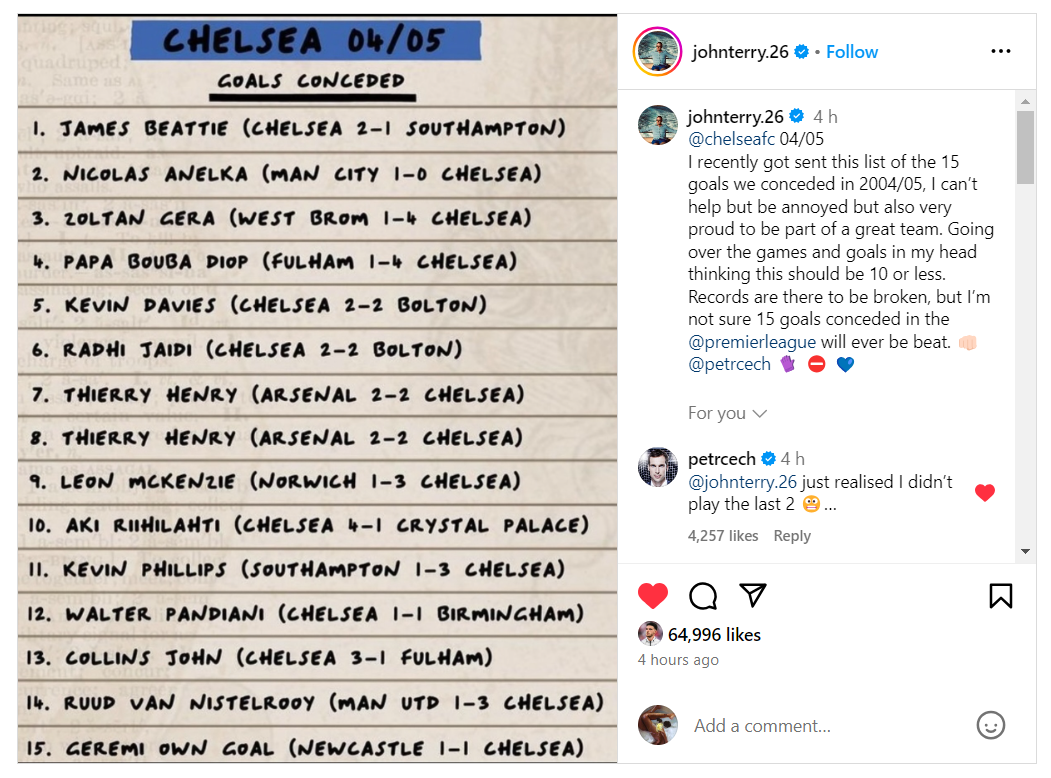 CHELSEA 04/05
GOALS CONCEDED
1. JAMES BEATTIE (CHELSEA 2-1 SOUTHAMPTON)
2. NICOLAS ANELKA (MAN CITY 1-0 CHELSEA)
3. ZOLTAN GERA (WEST BROM 1-4 CHELSEA)
4. PAPA BOUBA DIOP (FULHAM 1-4 CHELSEA)
5. KEVIN DAVIES (CHELSEA 2-2 BOLTON)
6. RADHI JAIDI (CHELSEA 2-2 BOLTON)
7. THIERRY HENRY (ARSENAL 2-2 CHELSEA)
8. THIERRY HENRY (ARSENAL 2-2 CHELSEA)
9. LEON MCKENZIE (NORWICH 1-3 CHELSEA)
10. AKI RIIHILAHTI (CHELSEA 4-1 CRYSTAL PALACE)
11. KEVIN PHILLIPS (SOUTHAMPTON 1-3 CHELSEA)
12. WALTER PANDIANI (CHELSEA 1-1 BIRMINGHAM)
13. COLLINS JOHN (CHELSEA 3-1 FULHAM)
14. RUUD VAN NISTELROOY (MAN UTD 1-3 CHELSEA)
15. GEREMI OWN GOAL (NEWCASTLE 1-1 CHELSEA)
johnterry.26 • Follow
johnterry.26 4 h
@chelseafc 04/05
I recently got sent this list of the 15
goals we conceded in 2004/05, I can't
help but be annoyed but also very
proud to be part of a great team. Going
over the games and goals in my head
thinking this should be 10 or less.
Records are there to be broken, but I'm
not sure 15 goals conceded in the
@premierleague will ever be beat. 👊🏻
@petrcech 🧤 ⛔ 💙
For you
petrcech 4 h
@johnterry.26 just realised I didn't
play the last 2 😬 ...
4,257 likes Reply
64,996 likes
4 hours ago
Add a comment...